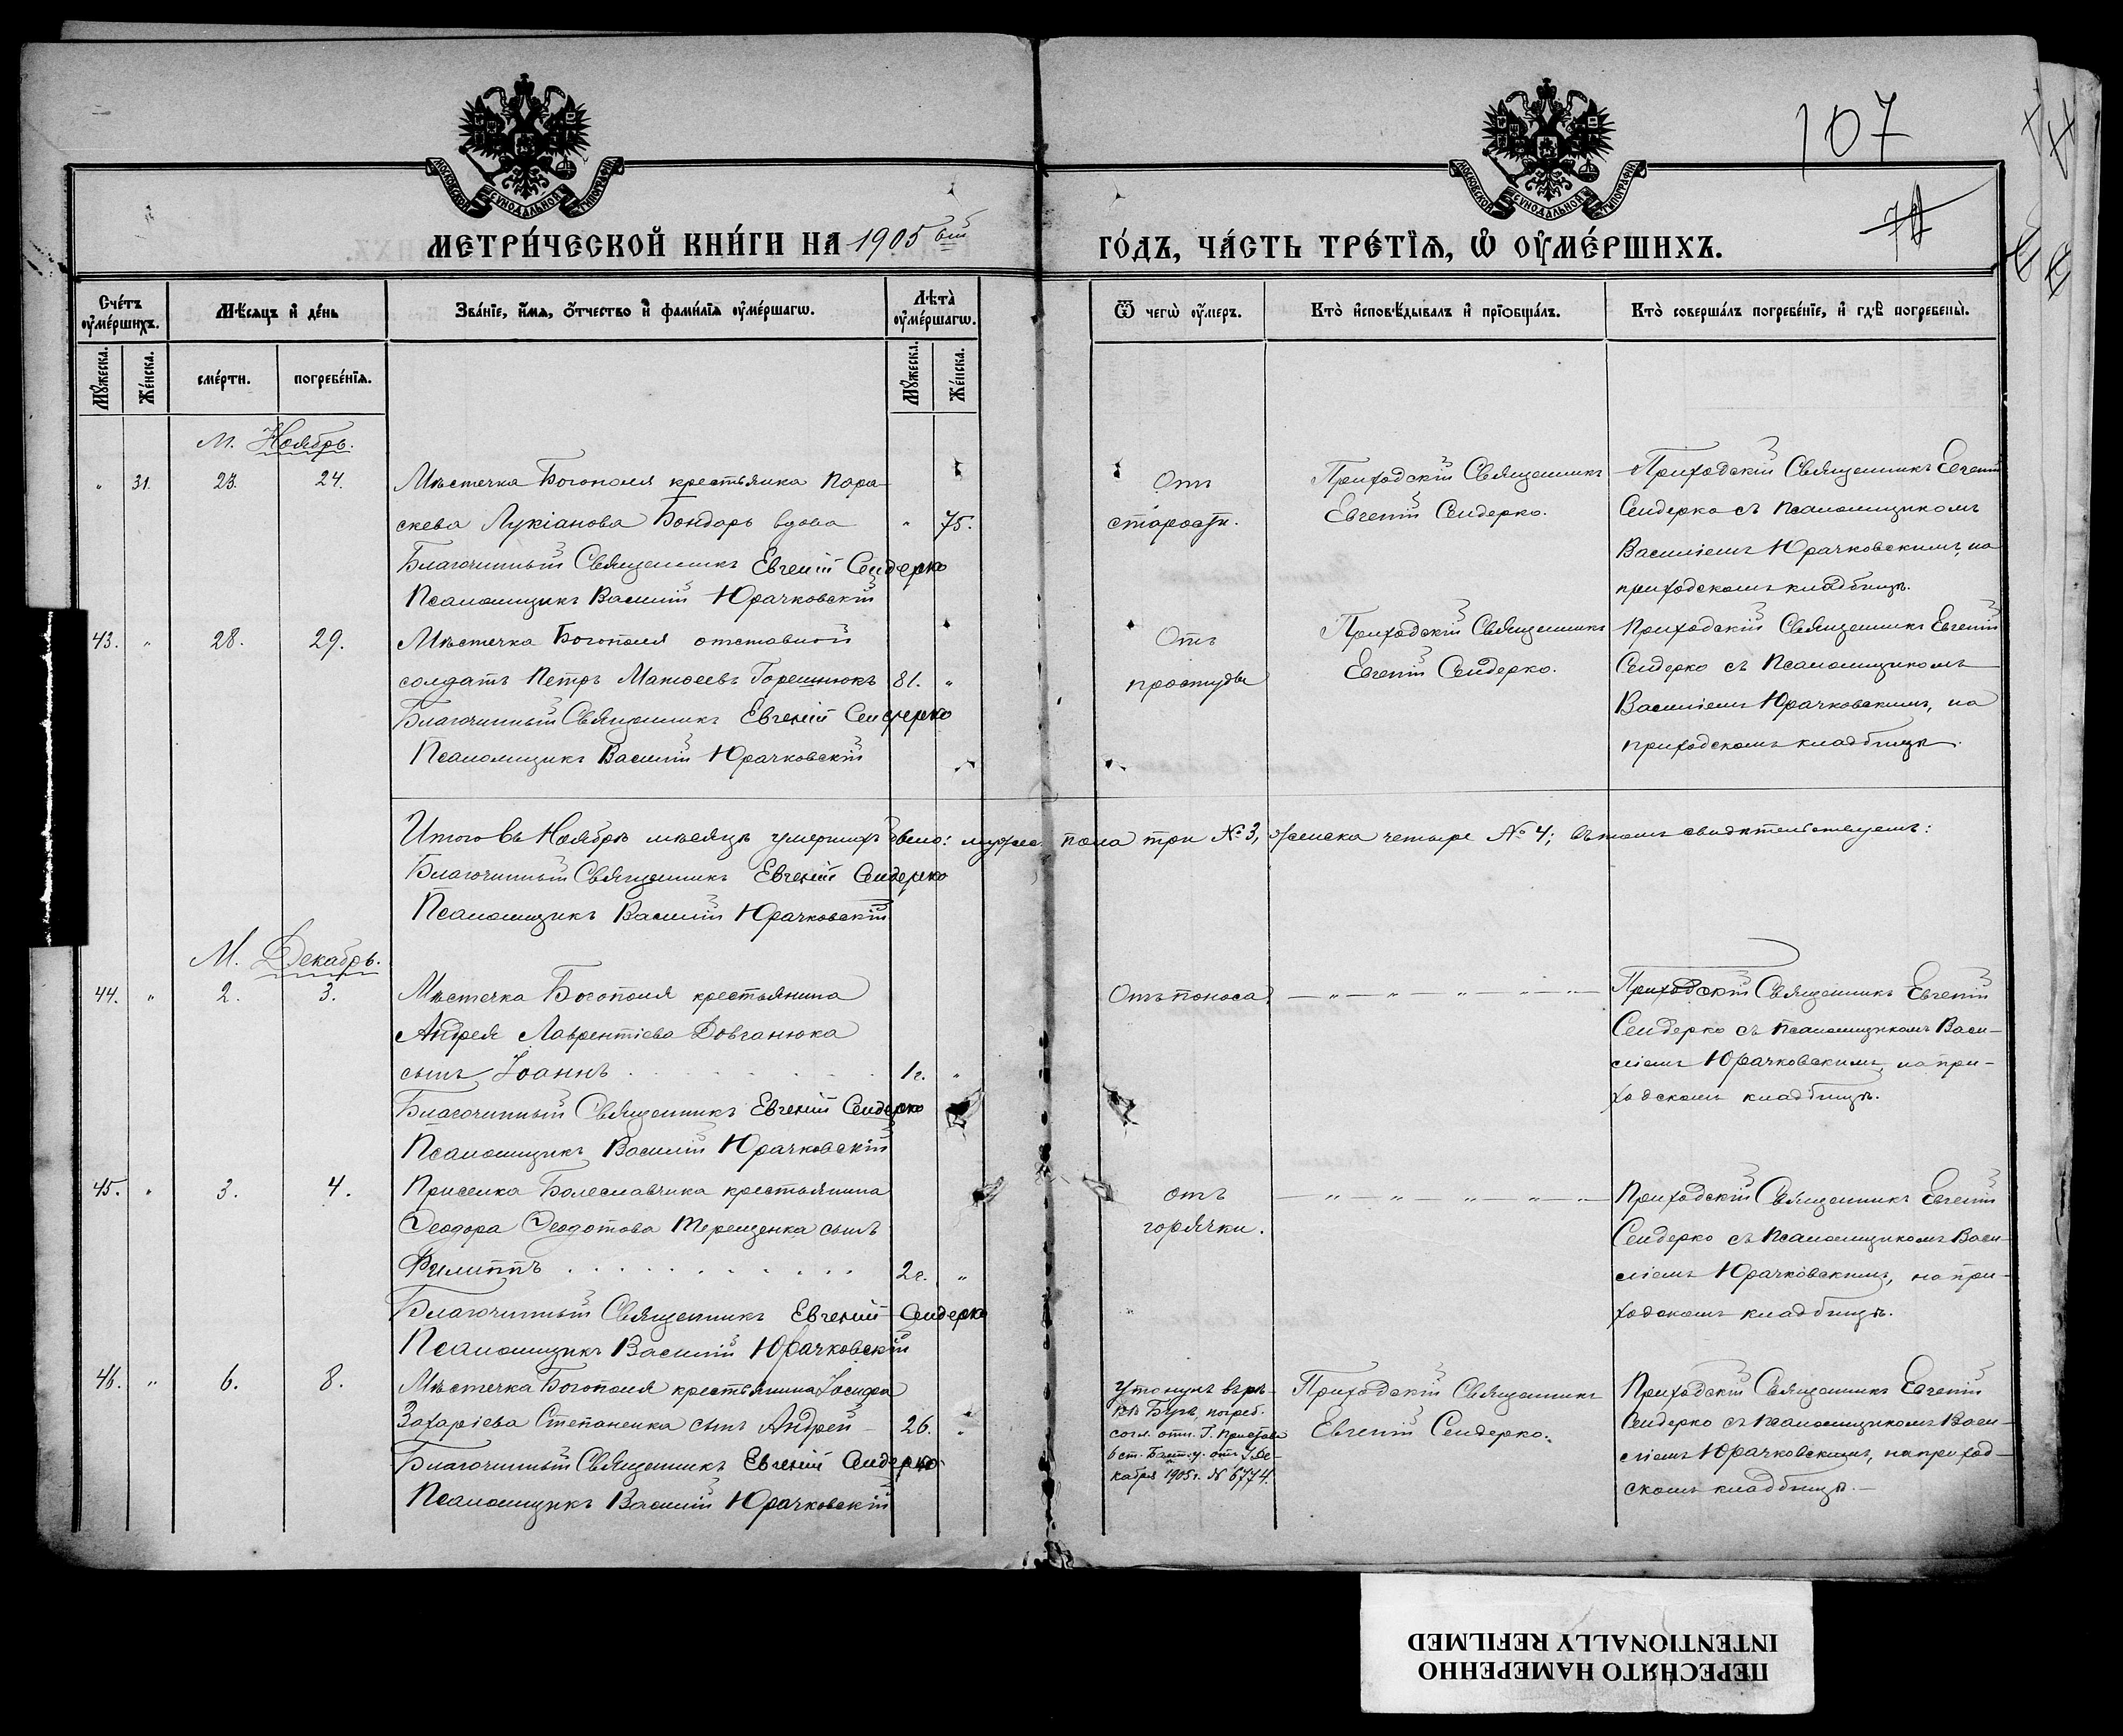 МОСКОВСКОЙ СѴНОДАЛЬНОЙ ТИПОГРАФІИ
МОСКОВСКОЙ СѴНОДАЛЬНОЙ ТИПОГРАФІИ
107
МЕТРИ́ЧЕСКОЙ КНИ́ГИ НА 1905 ый
ГО́ДЪ, ЧА́СТЬ ТРЕ́ТІѦ, Ѡ҆ ОУ҆МЕ́РШИХЪ.
Сче́тъ оу҆ме́ршихъ.
Мѣ́сѧцъ и҆ де́нь
Зва́нїе, и҆́мѧ, ѻ҆́тчество и҆ фами́лїѧ оу҆ме́ршагѡ.
Лѣ̀та оу҆ме́ршагѡ.
Ѿ чегѡ̀ оу҆́меръ.
Кто̀ и҆сповѣ́дывалъ и҆ прїѻбща́лъ.
Кто̀ соверша́лъ погребе́нїе, и҆ гдѣ̀ погребены̀.
Мꙋ́жеска.
Же́нска.
сме́рти.
погребе́нїѧ.
Мꙋ́жеска.
Же́нска.
М. Ноябрь.
" 31. 23. 24. Мѣстечка Богополя крестьянка Пара-
скева Лукіанова Бондарь вдова " 75.
Благочинный Священникъ Евгеній Сендерко
Псаломщикъ Василій Юрачковскій
Отъ
старости.
Приходскій Священникъ
Евгеній Сендерко.
Приходскій Священникъ Евгеній
Сендерко съ Псаломщикомъ
Василіемъ Юрачковскимъ, на
приходскомъ кладбищѣ.
43. " 28. 29. Мѣстечка Богополя отставной
солдатъ Петръ Матѳеевъ Горешнюкъ 81. "
Благочинный Священникъ Евгеній Сендерко
Псаломщикъ Василій Юрачковскій
Отъ
простуды
Приходскій Священникъ
Евгеній Сендерко.
Приходскій Священникъ Евгеній
Сендерко съ Псаломщикомъ
Василіемъ Юрачковскимъ, на
приходскомъ кладбищѣ.
Итого въ Ноябрѣ мѣсяцѣ умершихъ было: мужс. пола три № 3, женска четыре № 4; въ томъ свидѣтельствуемъ:
Благочинный Священникъ Евгеній Сендерко
Псаломщикъ Василій Юрачковскій
М. Декабрь.
44. " 2. 3. Мѣстечка Богополя крестьянина
Андрея Лаврентіева Довганюка
сынъ Іоаннъ 1г. "
Благочинный Священникъ Евгеній Сендерко
Псаломщикъ Василій Юрачковскій
Отъ поноса — " — " — " — " —
Приходскій Священникъ Евгеній
Сендерко съ Псаломщикомъ Васи-
ліемъ Юрачковскимъ, на при-
ходскомъ кладбищѣ.
45. " 3. 4. Приселка Болеславчика крестьянина
Ѳеодора Ѳеодотова Терещенка сынъ
Филиппъ 2г. "
Благочинный Священникъ Евгеній Сендерко
Псаломщикъ Василій Юрачковскій
отъ
горячки.
— " — " — " — " —
Приходскій Священникъ Евгеній
Сендерко съ Псаломщикомъ Васи-
ліемъ Юрачковскимъ, на при-
ходскомъ кладбищѣ.
46. " 6. 8. Мѣстечка Богополя крестьянина Іосифа
Захаріева Степаненка сынъ Андрей 26. "
Благочинный Священникъ Евгеній Сендерко
Псаломщикъ Василій Юрачковскій
Утонулъ въ рѣ-
кѣ Бугѣ, погреб.
согл. отн. Г. Пристава
6 ст. Балт. у. отъ 7 Де-
кабря 1905 г. № 6774.
Приходскій Священникъ
Евгеній Сендерко.
Приходскій Священникъ Евгеній
Сендерко съ Псаломщикомъ Васи-
ліемъ Юрачковскимъ, на приход-
скомъ кладбищѣ.
ПЕРЕСНЯТО НАМЕРЕННО
INTENTIONALLY REFILMED